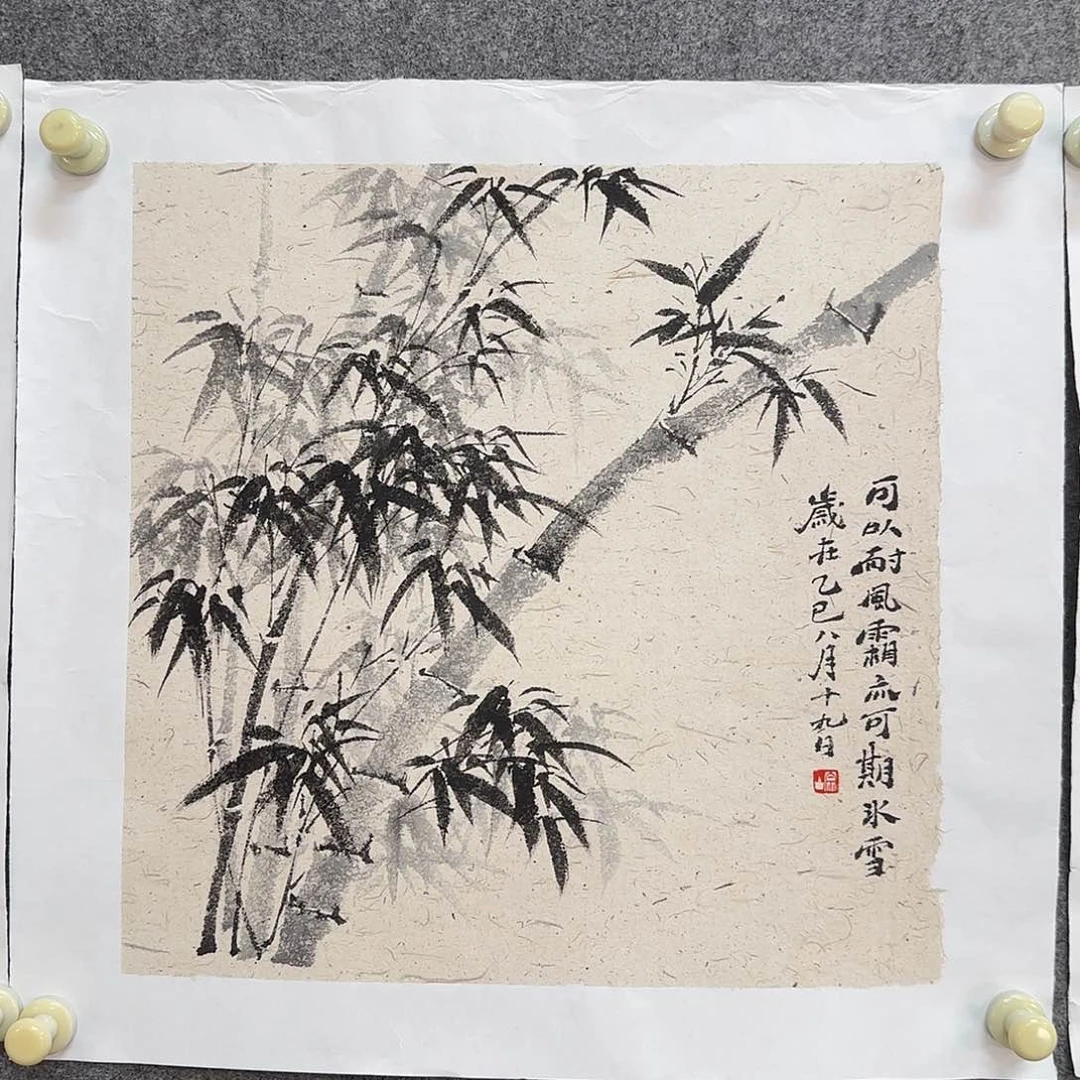 可以耐風霜亦可期氷雪
歲在乙巳八月十九日